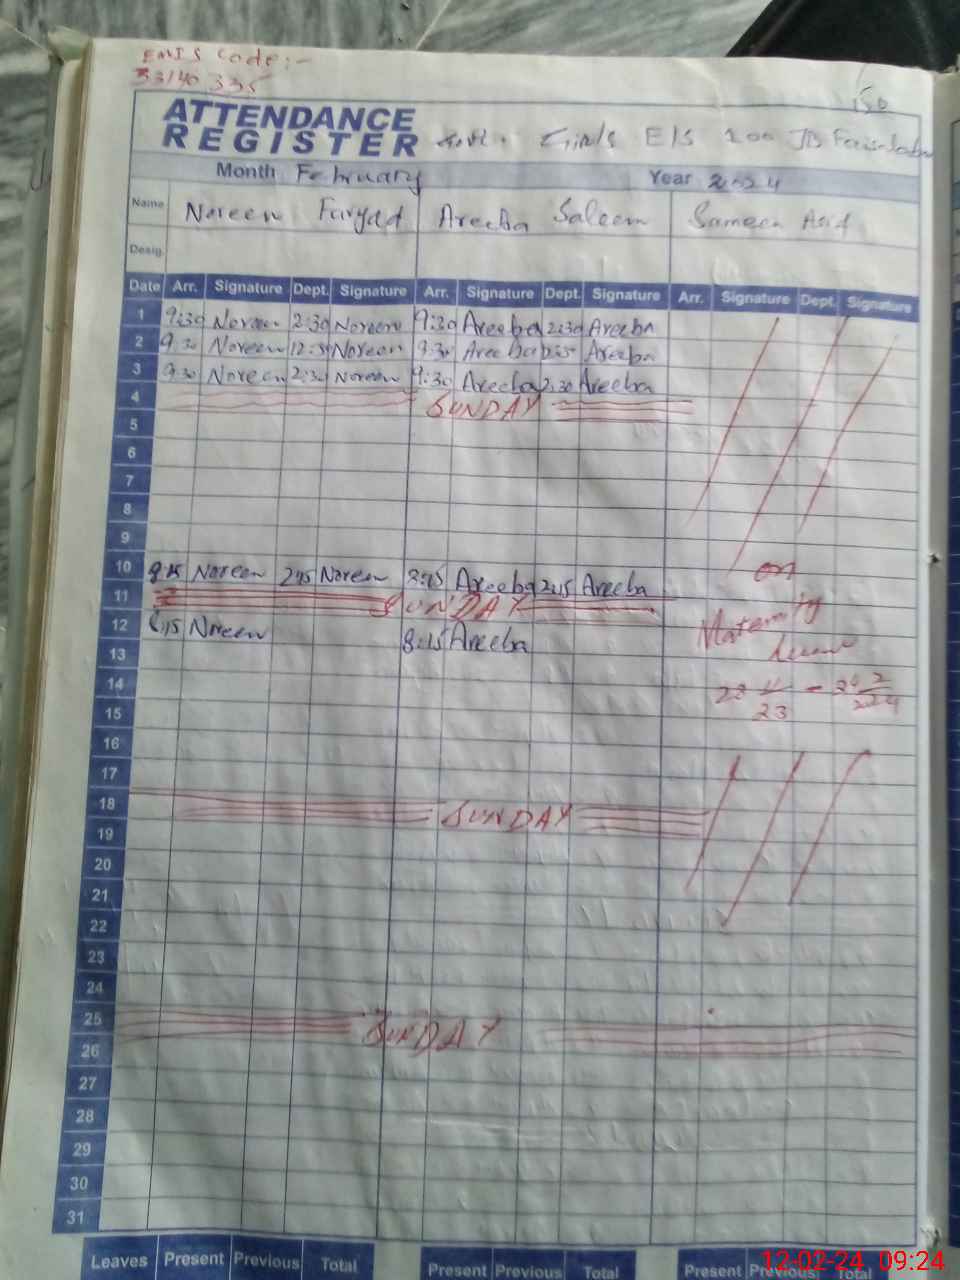 EMIS Code:-
33140335
150
ATTENDANCE
REGISTER Govt. Girls E/S 100 JB Faisalabad
Month February Year 2024
Name Noreen Faryad Areeba Saleem Sameen Asif
Desig.
Date Arr. Signature Dept. Signature Arr. Signature Dept. Signature Arr. Signature Dept. Signature
1 9:30 Noreen 2:30 Noreen 9:30 Areeba 2:30 Areeba
2 9:30 Noreen 12:30 Noreen 9:30 Areeba Areeba
3 9:30 Noreen 2:30 Noreen 9:30 Areeba 2:30 Areeba
4 SUNDAY
5
6
7
8
9
10 8:15 Noreen 2:45 Noreen 8:15 Areeba 2:45 Areeba on
11 SUNDAY Maternity
12 8:15 Noreen 8:15 Areeba
13 leave
14
15
16
17
18 SUNDAY
19
20
21
22
23
24
25 SUNDAY
26
27
28
29
30
31
Leaves Present Previous Total Present Previous Total Present Previous Total
12-02-24 09:24